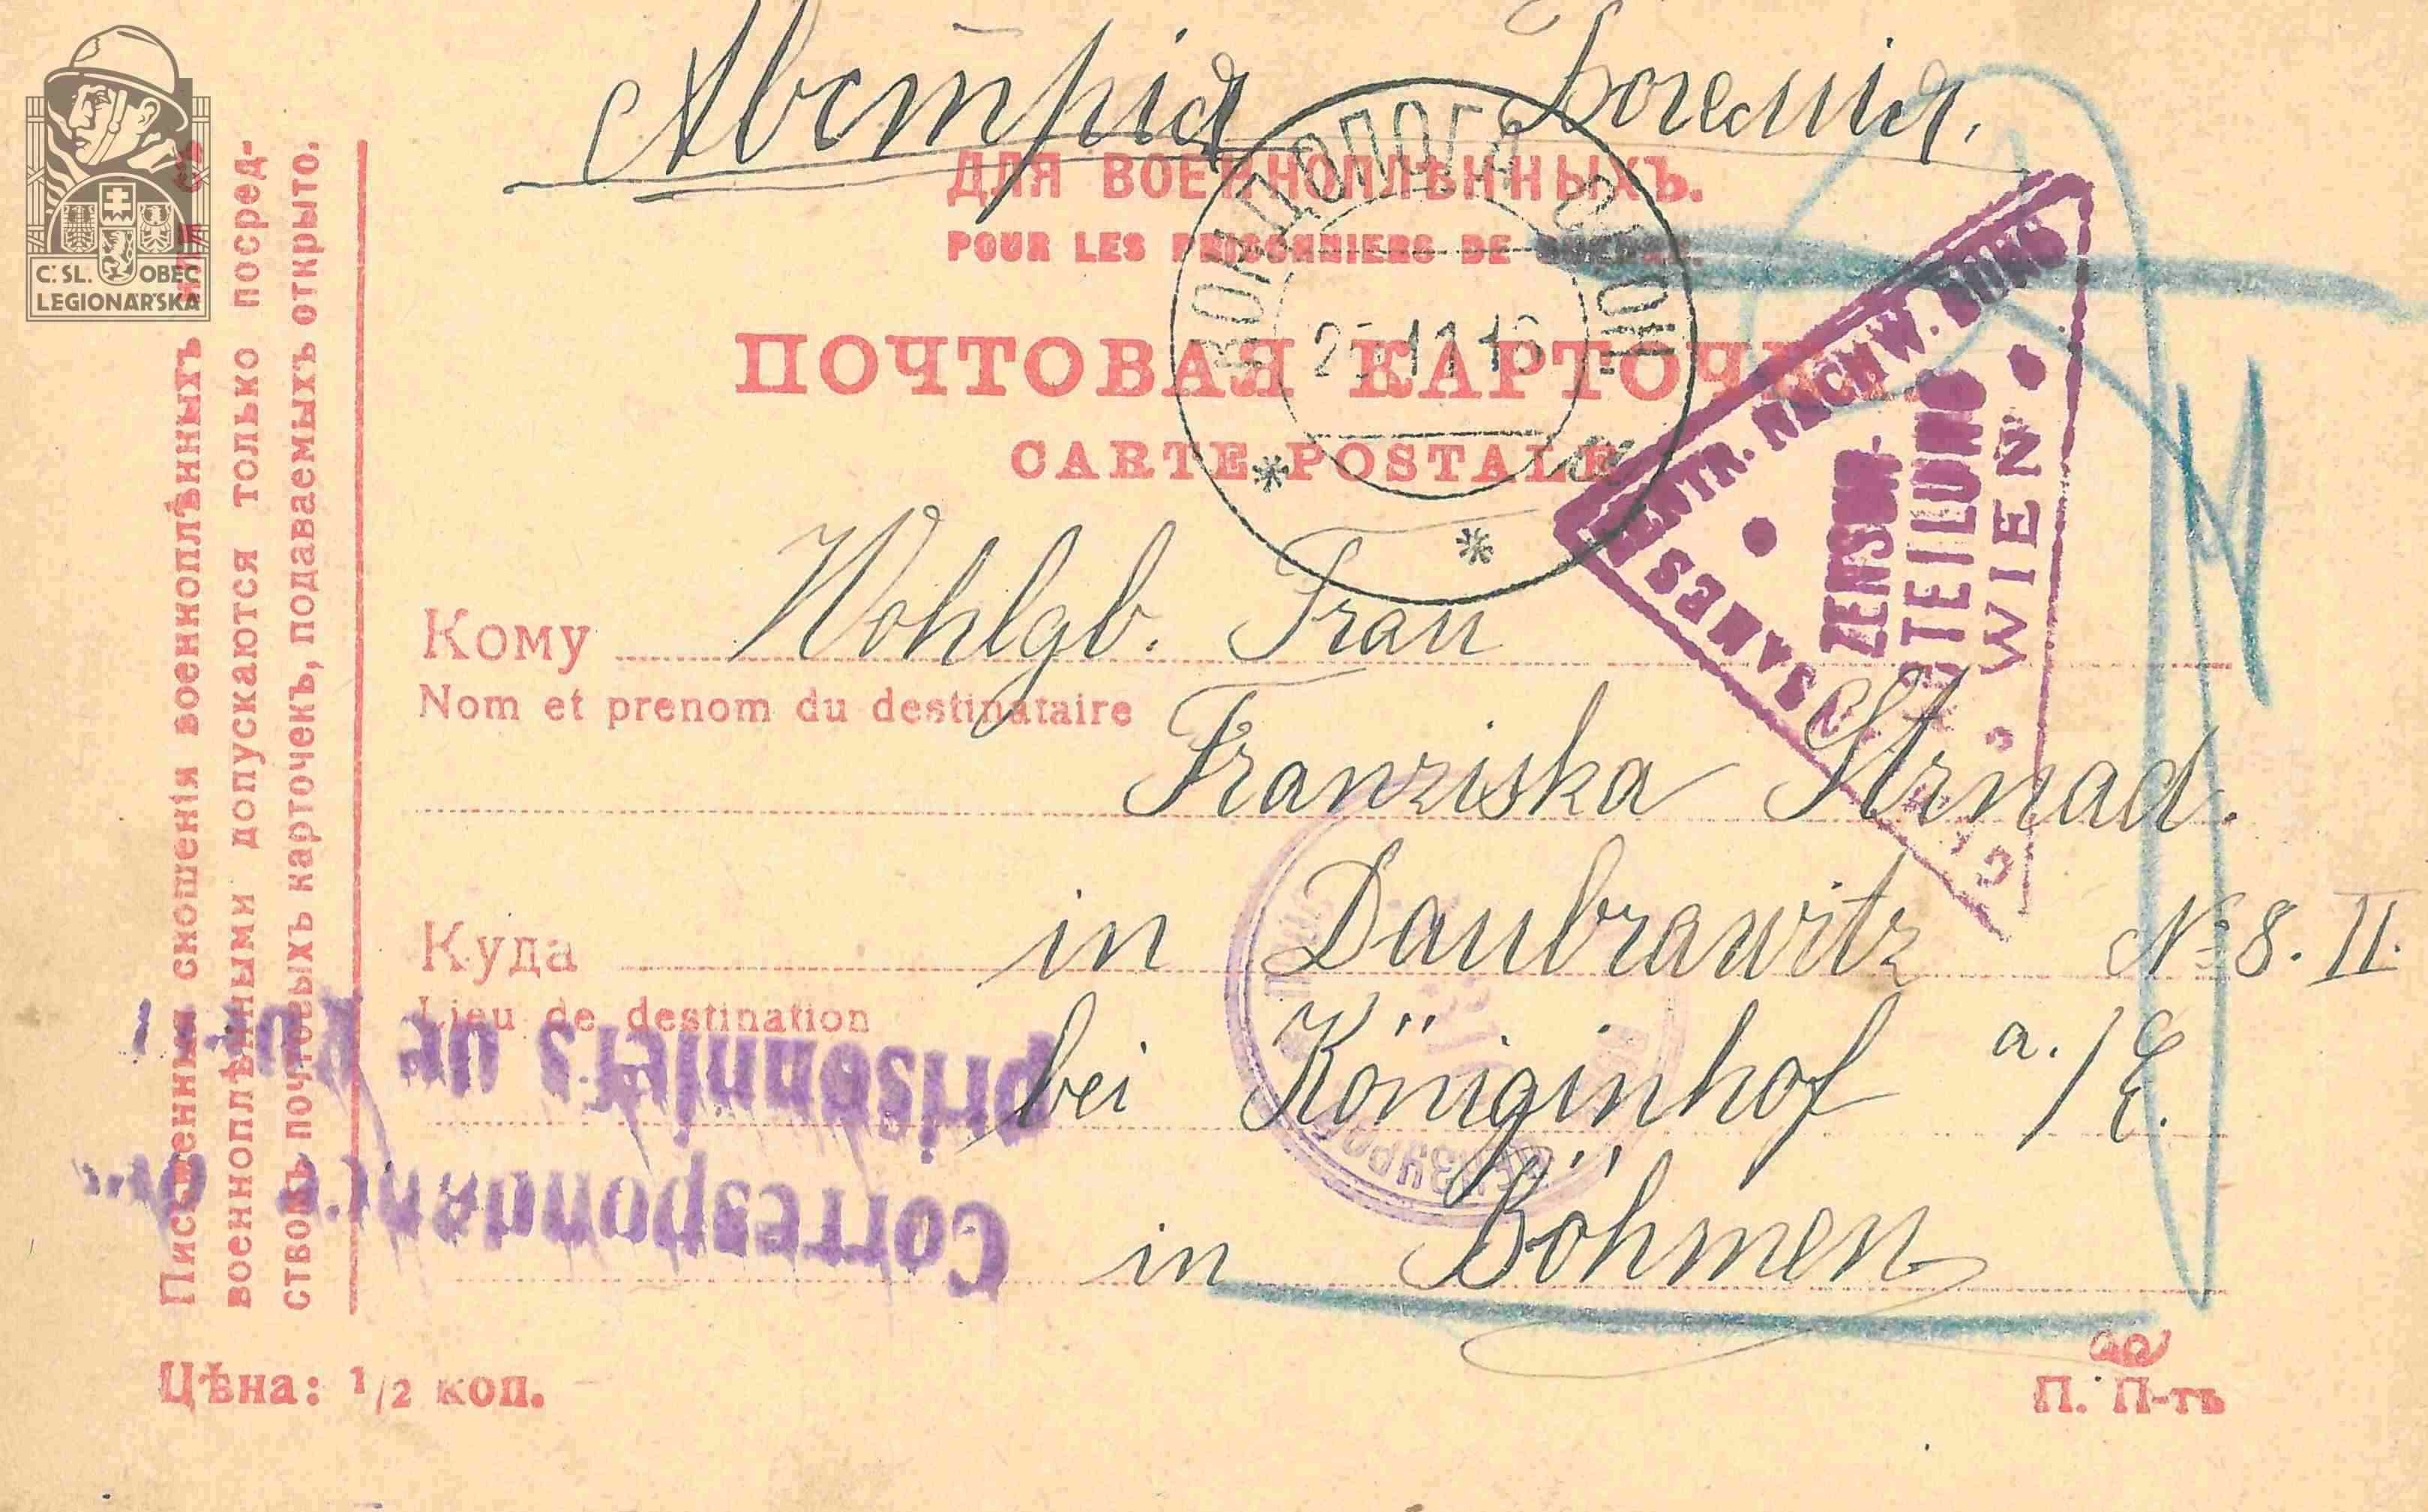 Австрія Богемія.
ДЛЯ ВОЕННОПЛѢННЫХЪ.
POUR LES PRISONNIERS DE GUERRE.
ПОЧТОВАЯ КАРТОЧКА.
CARTE POSTALE
25 11 16
ZENTR. NACHW. BUREAU
ZENSUR-
ABTEILUNG
WIEN
Кому Wohlgb. Frau
Nom et prenom du destinataire
Franziska Strnad.
Куда in Daubrawitz № 8. II.
Lieu de destination
bei Königinhof a./E.
in Böhmen
Correspondance
prisonniers de
Письменныя сношенія военноплѣнныхъ или съ
военноплѣнными допускаются только посред-
ствомъ почтовыхъ карточекъ, подаваемыхъ открыто.
Цѣна: 1/2 коп.
П. П-тъ
Č. SL. OBEC
LEGIONÁŘSKÁ